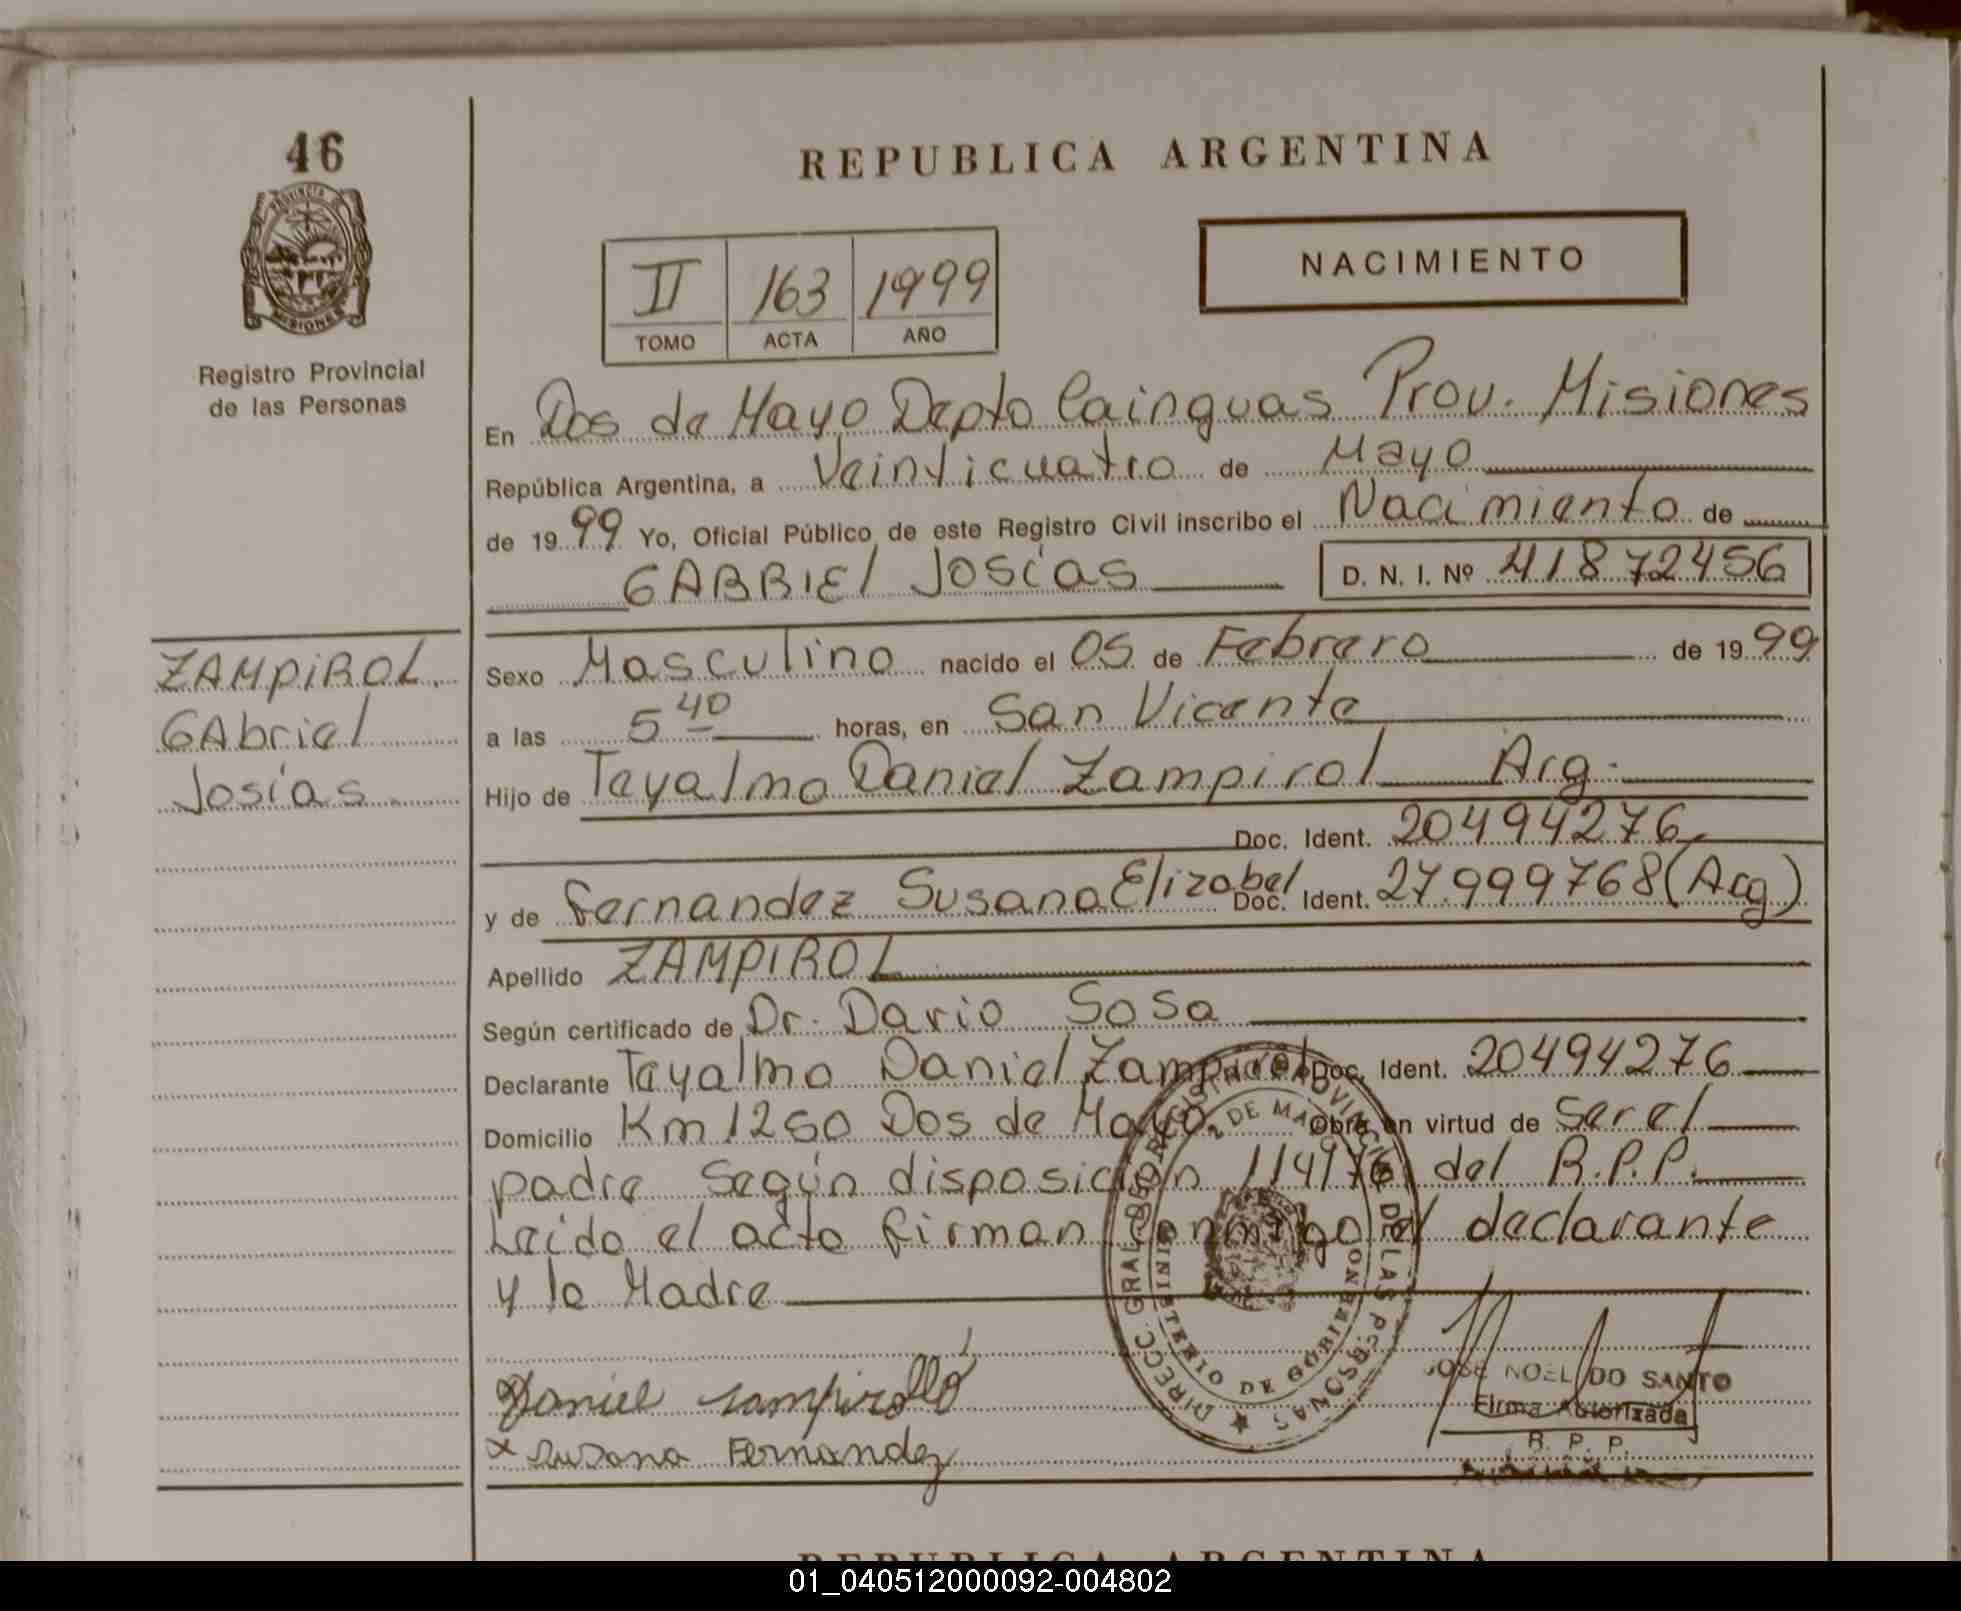 46
REPUBLICA ARGENTINA
PROVINCIA D
MISIONES
NACIMIENTO
II 163 1999
TOMO ACTA AÑO
Registro Provincial
de las Personas
En Dos de Mayo Depto Cainguas Prov. Misiones
República Argentina, a Veinticuatro de Mayo
de 1999 Yo, Oficial Público de este Registro Civil inscribo el Nacimiento de
GABRIEL Josías D. N. I. Nº 41872456
ZAMPIROL
GAbriel
Josías
Sexo Masculino nacido el 05 de Febrero de 1999
a las 5 40 horas, en San Vicente
Hijo de Teyalmo Daniel Zampirol Arg.
Doc. Ident. 20494276
y de Fernandez Susana Elizabel Doc. Ident. 27.999768 (Arg)
Apellido ZAMPIROL
Según certificado de Dr. Dario Sosa
Declarante Teyalmo Daniel Zampirol Doc. Ident. 20494276
Domicilio Km 1250 Dos de Mayo Obra en virtud de Ser el
padre según disposición 114/76 del R.P.P.
Leido el acta firman conmigo el declarante
y la Madre
DIRECC. GRAL. DEL REGISTRO PROVINCIAL DE LAS PERSONAS
2 DE MAYO
MINISTERIO DE GOBIERNO
Daniel
x Susana Fernandez
JOSE NOEL DO SANTO
Firma Autorizada
R. P. P.
REPUBLICA ARGENTINA
01_040512000092-004802